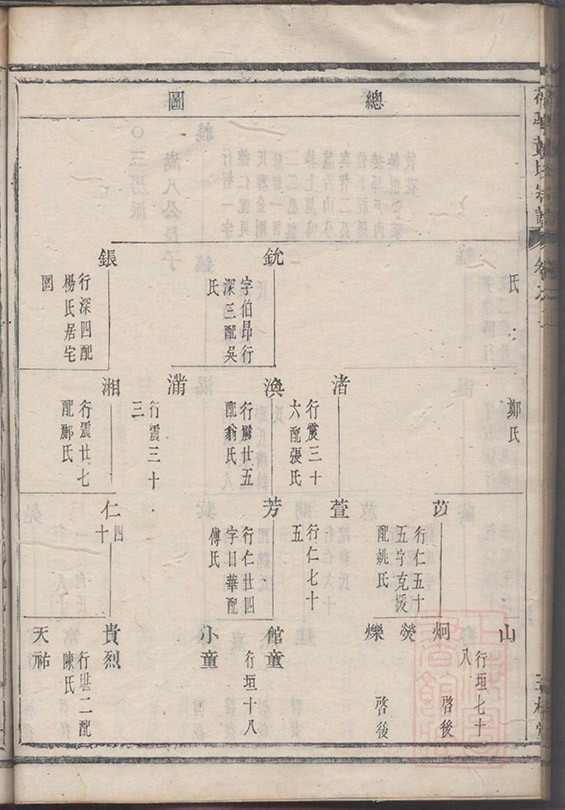 總圖
氏
鄭氏
山
行垣七十
八
銃
字伯昂行
深三配吳
氏
鋹
行深四配
楊氏居宅
渚
行震三十
六配張氏
渙
行震廿五
配翁氏
滿
行震三十
三
湘
行震廿七
配鄺氏
茵
行仁五十
五字克援
配姚氏
萱
行仁七十
五
芳
行仁廿四
字日華配
傅氏
仁
四
十
炯
啓後
熒
爍
啓後
館童
行垣十八
小童
貴烈
行堪二配
陳氏
天祐